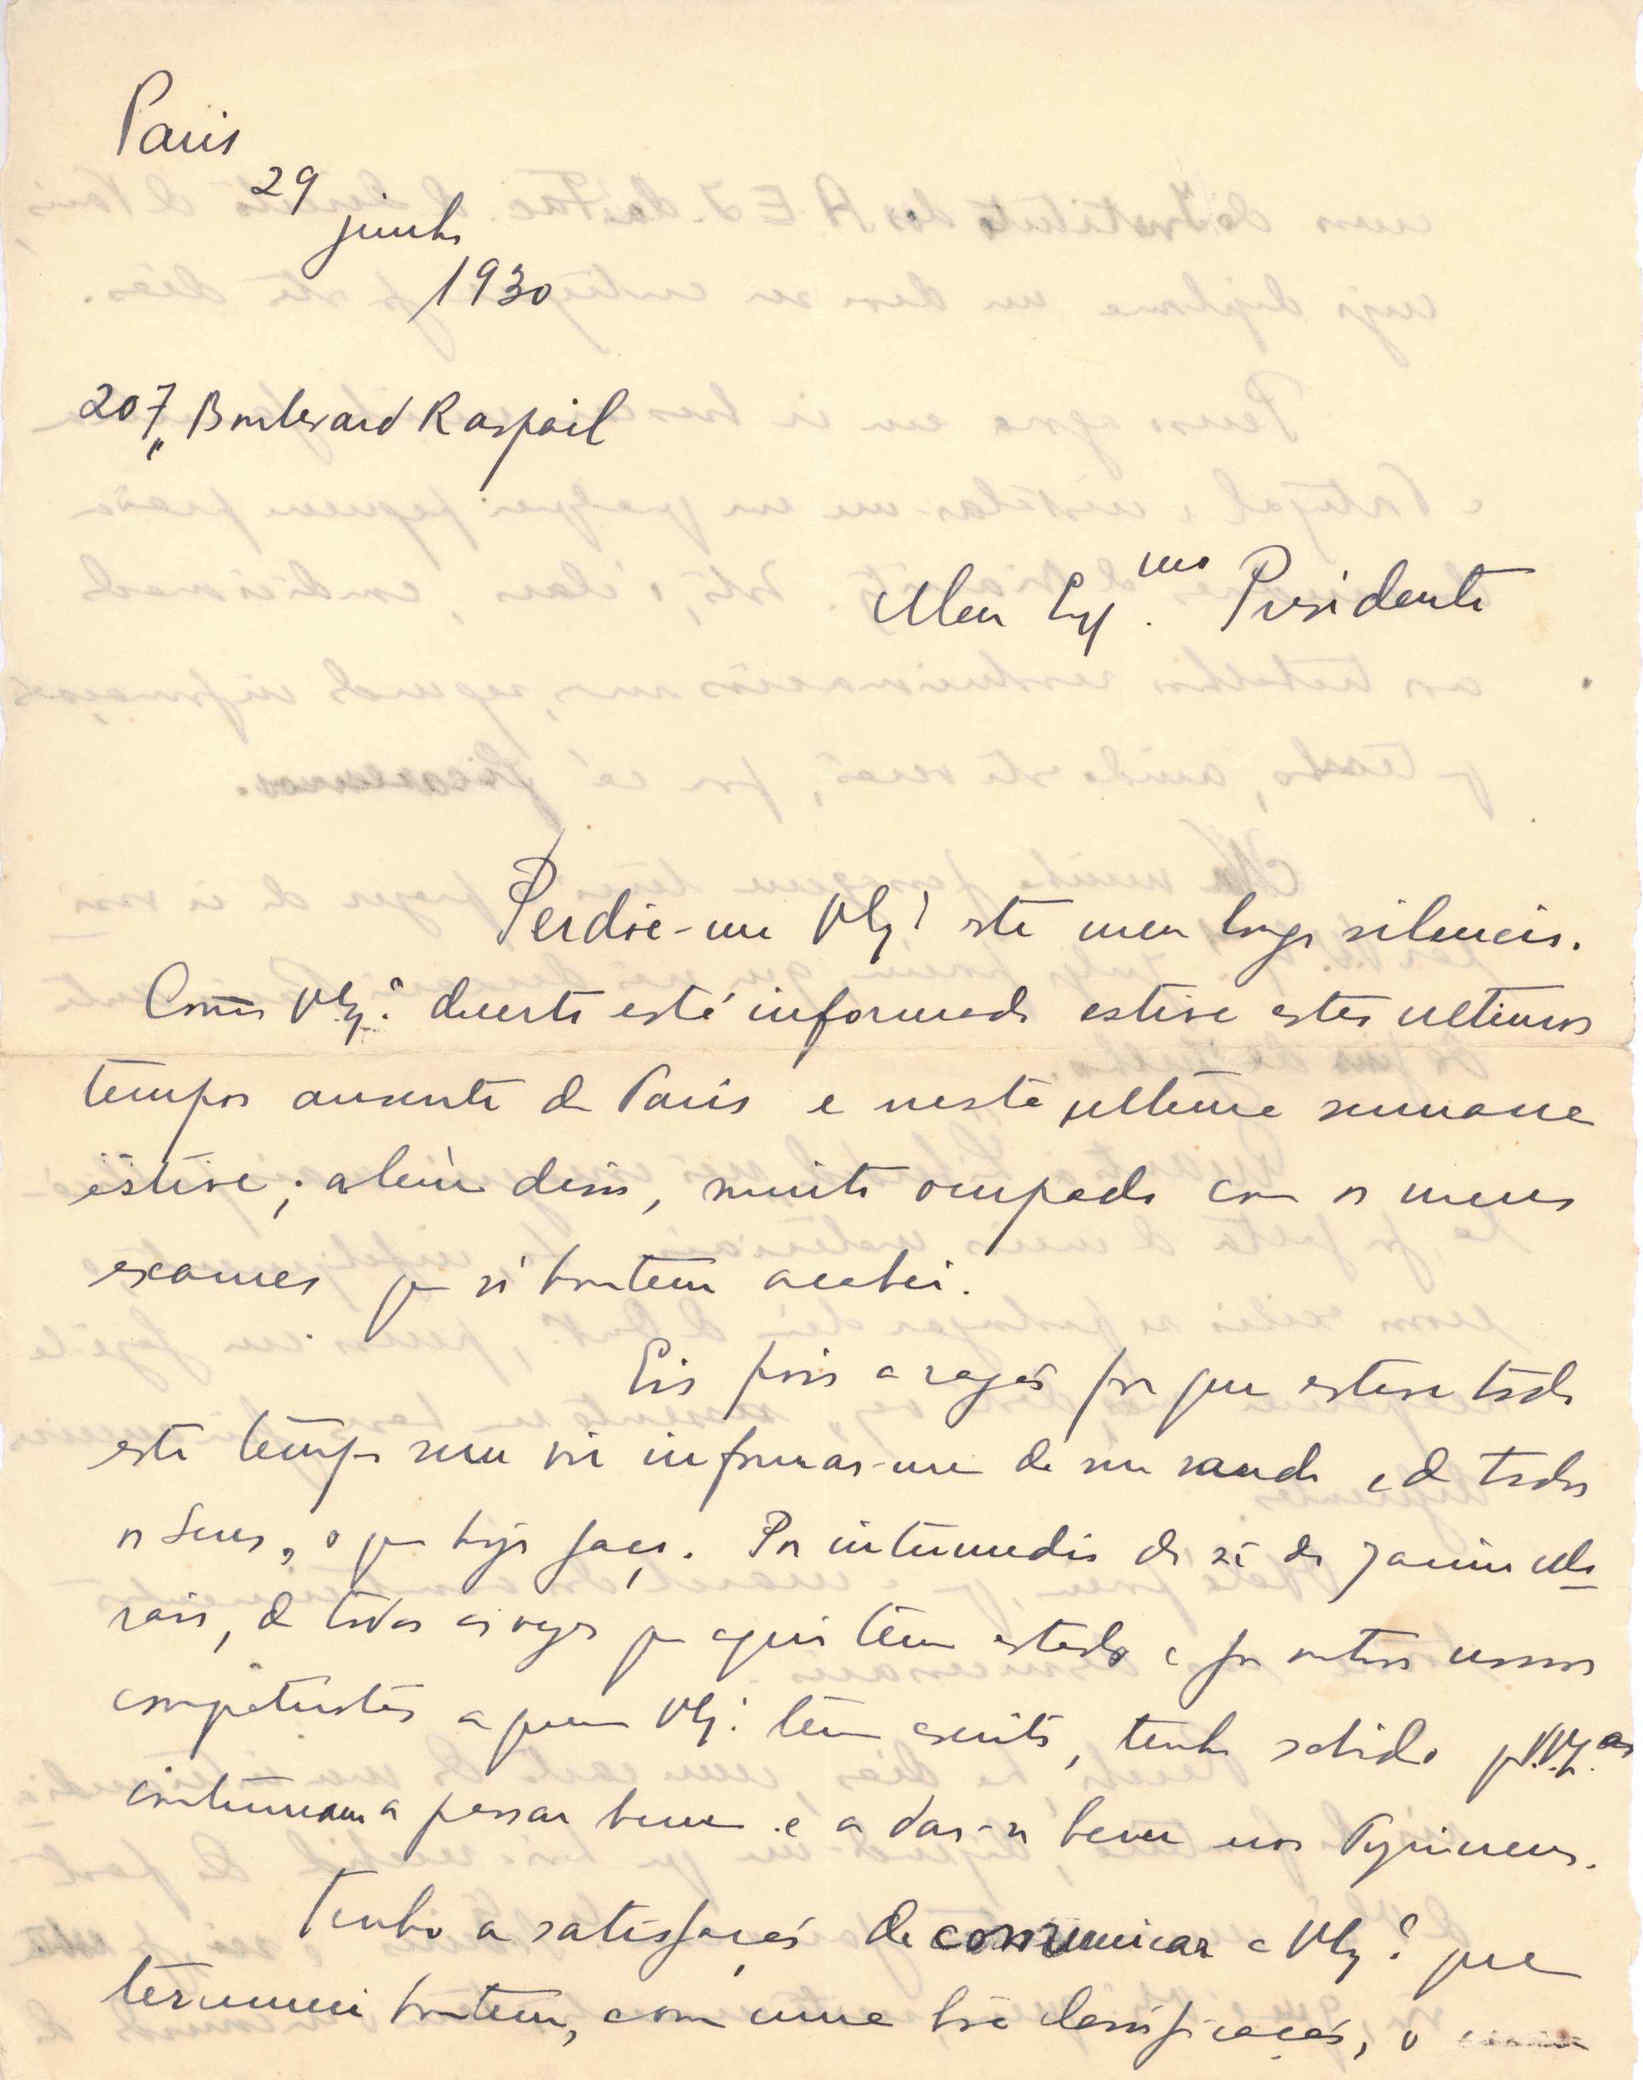 Paris
29
junho
1930
207, Boulevard Raspail
Meu Exmo. Presidente
Perdôe-me V.Exª este meu longo silencio.
Como V.Exª decerto está informado estive estes ultimos
tempos ausente de Paris e nesta ultima semana
estive, alêm disso, muito ocupado com os meus
exames que só hontem acabei.
Eis pois a razão por que estive todo
este tempo sem vir informar-me de sua saude e de todos
os seus, o que hoje faço. Por intermedio do sr. dr. Jaime Mo
rais, de todas as vezes que aqui tem estado e por outros nossos
a quem V.Exª tem escrito, tenho sabido q. V.V. Ex.as
continuam a passar bem e a dar-se bem nos Pyrineus.
Tenho a satisfação de comunicar a V.Exª que
terminei hontem, com uma bôa classificação, o